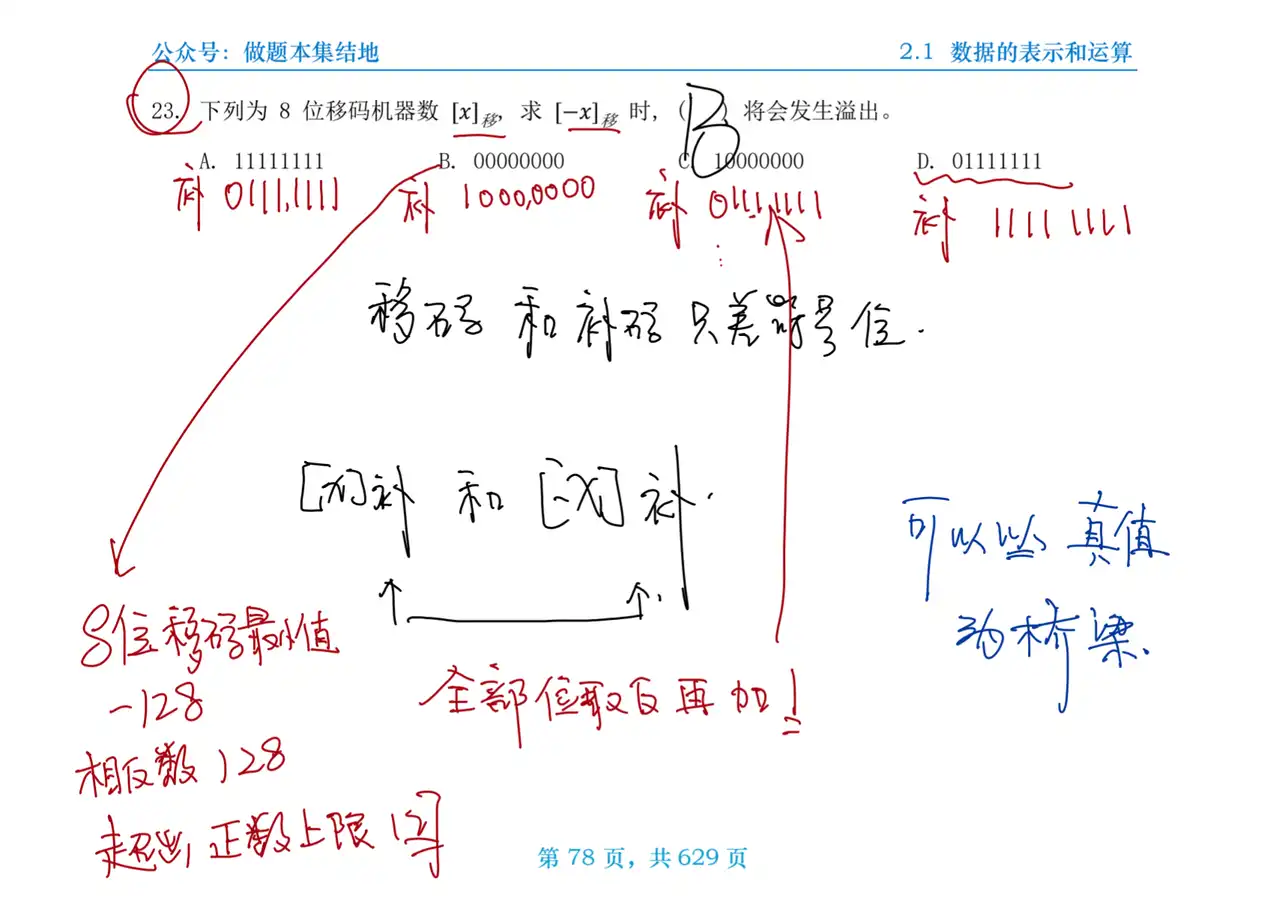 公众号：做题本集结地 2.1 数据的表示和运算
23. 下列为 8 位移码机器数 [x]移，求 [−x]移 时，( B ) 将会发生溢出。
A. 11111111 B. 00000000 C. 10000000 D. 01111111
补 0111,1111 补 1000,0000 补 0111,1111 补 1111 1111
移码 和 补码 只差符号位.
[x]补 和 [-x]补.
可以以 真值
为桥梁.
8位移码最小值
-128
全部位取反再加1
相反数 128
超出 正数上限 127
第 78 页，共 629 页